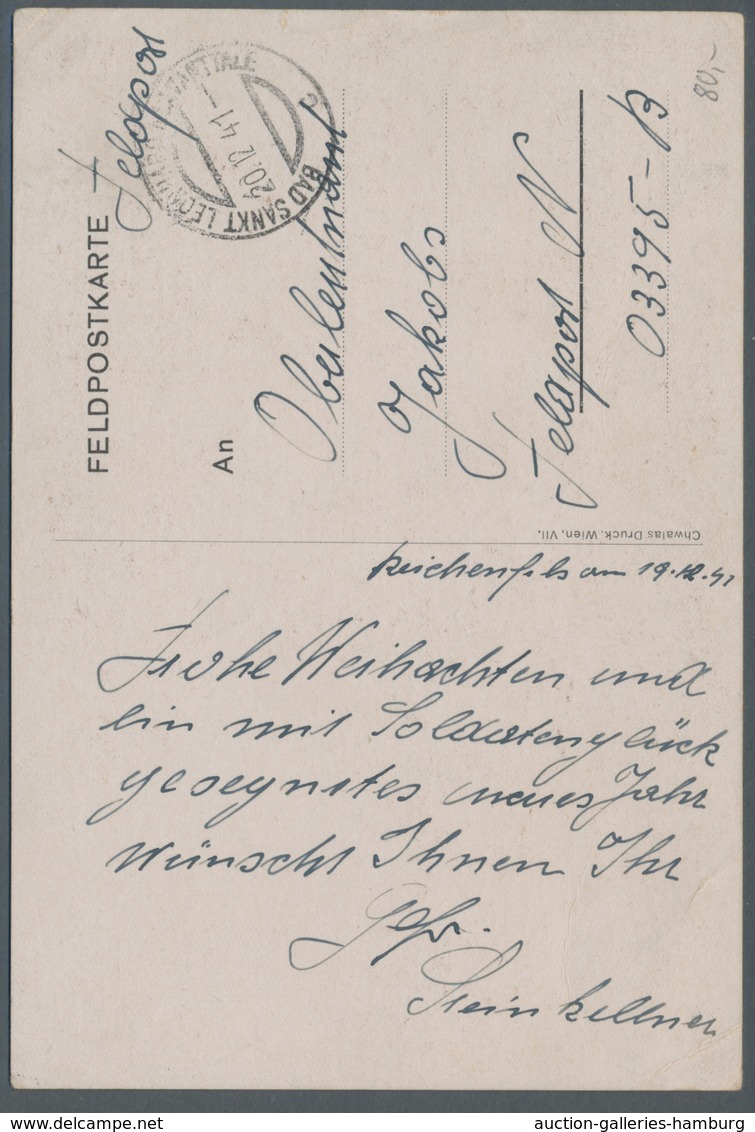 FELDPOSTKARTE
Feldpost
BAD SANKT LEONHARD LAVANTTALE
20.12.41-
2
An
Oberleutnant
Jakobs
Feldpost N
03395-B
80,-
Chwalas Druck, Wien, VII.
Reichenfels am 19.12.41
Frohe Weihachten und
ein mit Soldatenglück
gesegnetes neues Jahr
wünscht Ihnen Ihr
Gefr.
Steinkellner
auction-galleries-hamburg